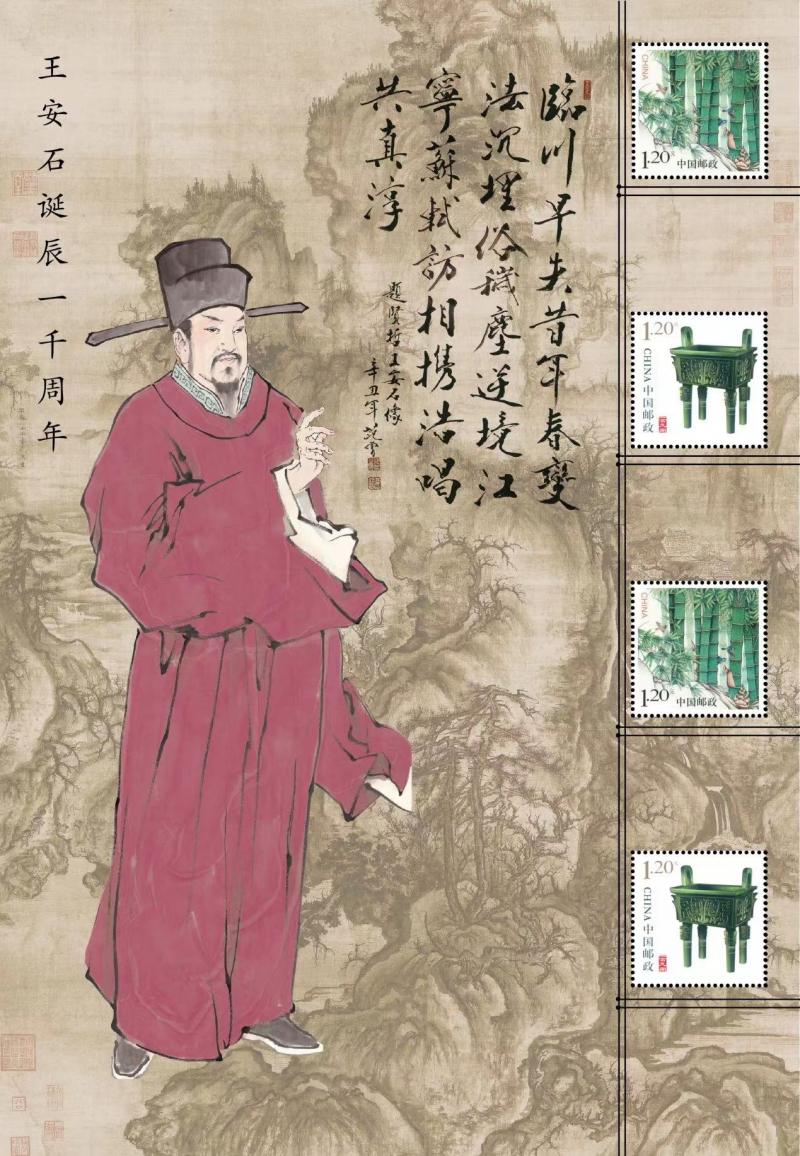 王安石诞辰一千周年
臨川早失昔年春變
法沉埋俗穢塵逆境江
寧蘇軾訪相携浩唱
共真淳
題賢哲王安石像
辛丑年
CHINA
1.20
中国邮政
1.20
CHINA 中国邮政
CHINA
1.20
中国邮政
1.20
CHINA 中国邮政